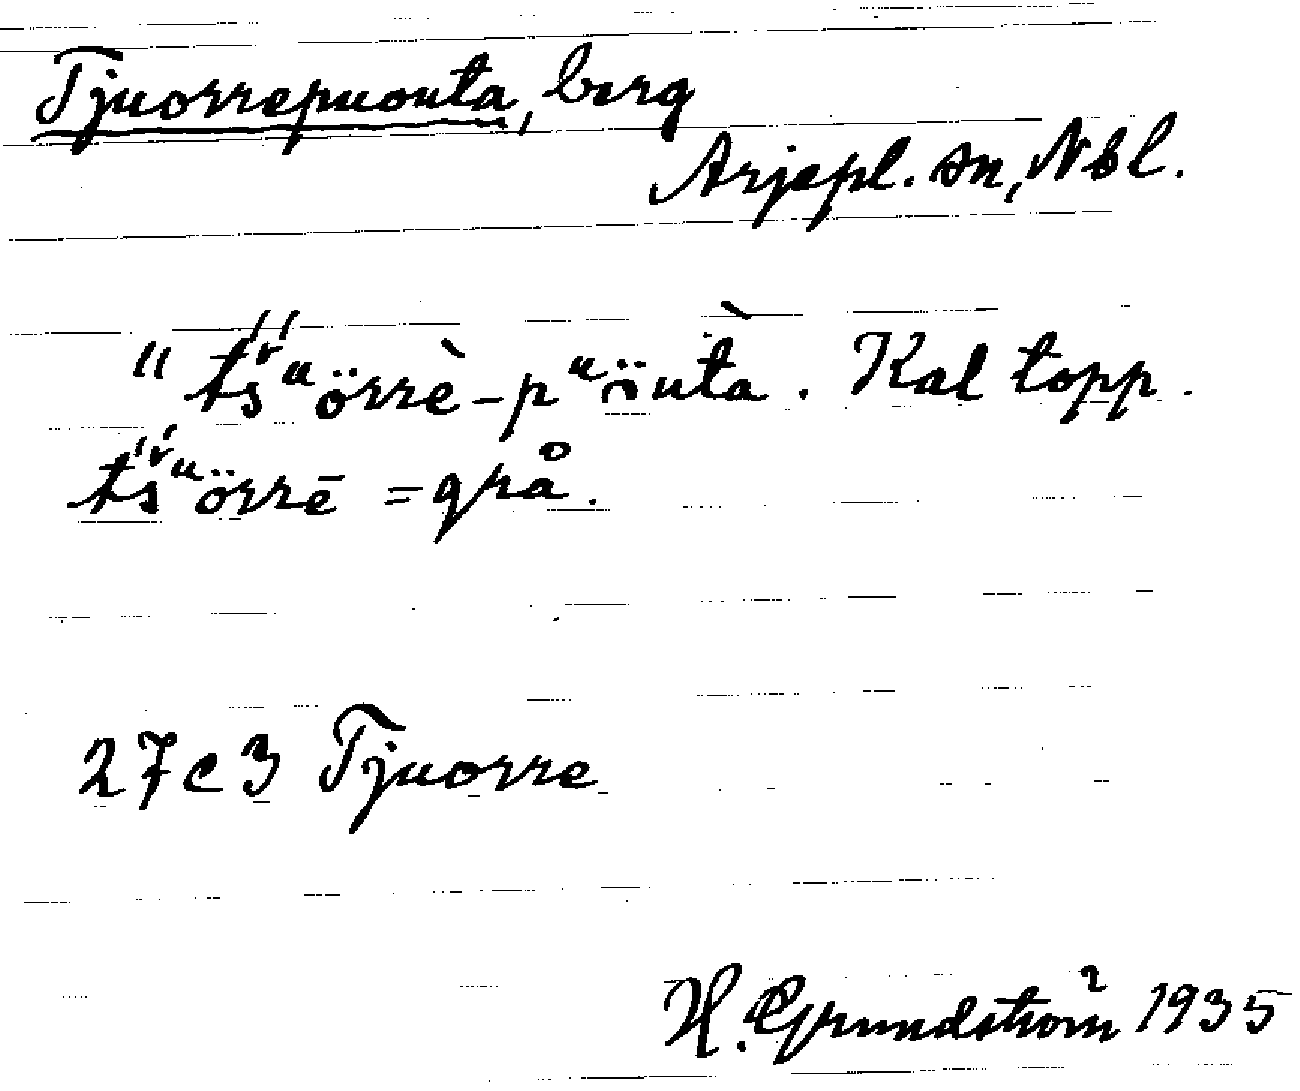 Tjuorrepuouta, berg
Arjepl. sn, Nbl.
" tš́ᵘörrè-pᵘöutà. Kal topp.
tš́ᵘörrē = grå.
27c3 Tjuorre
H. Grundström 1935